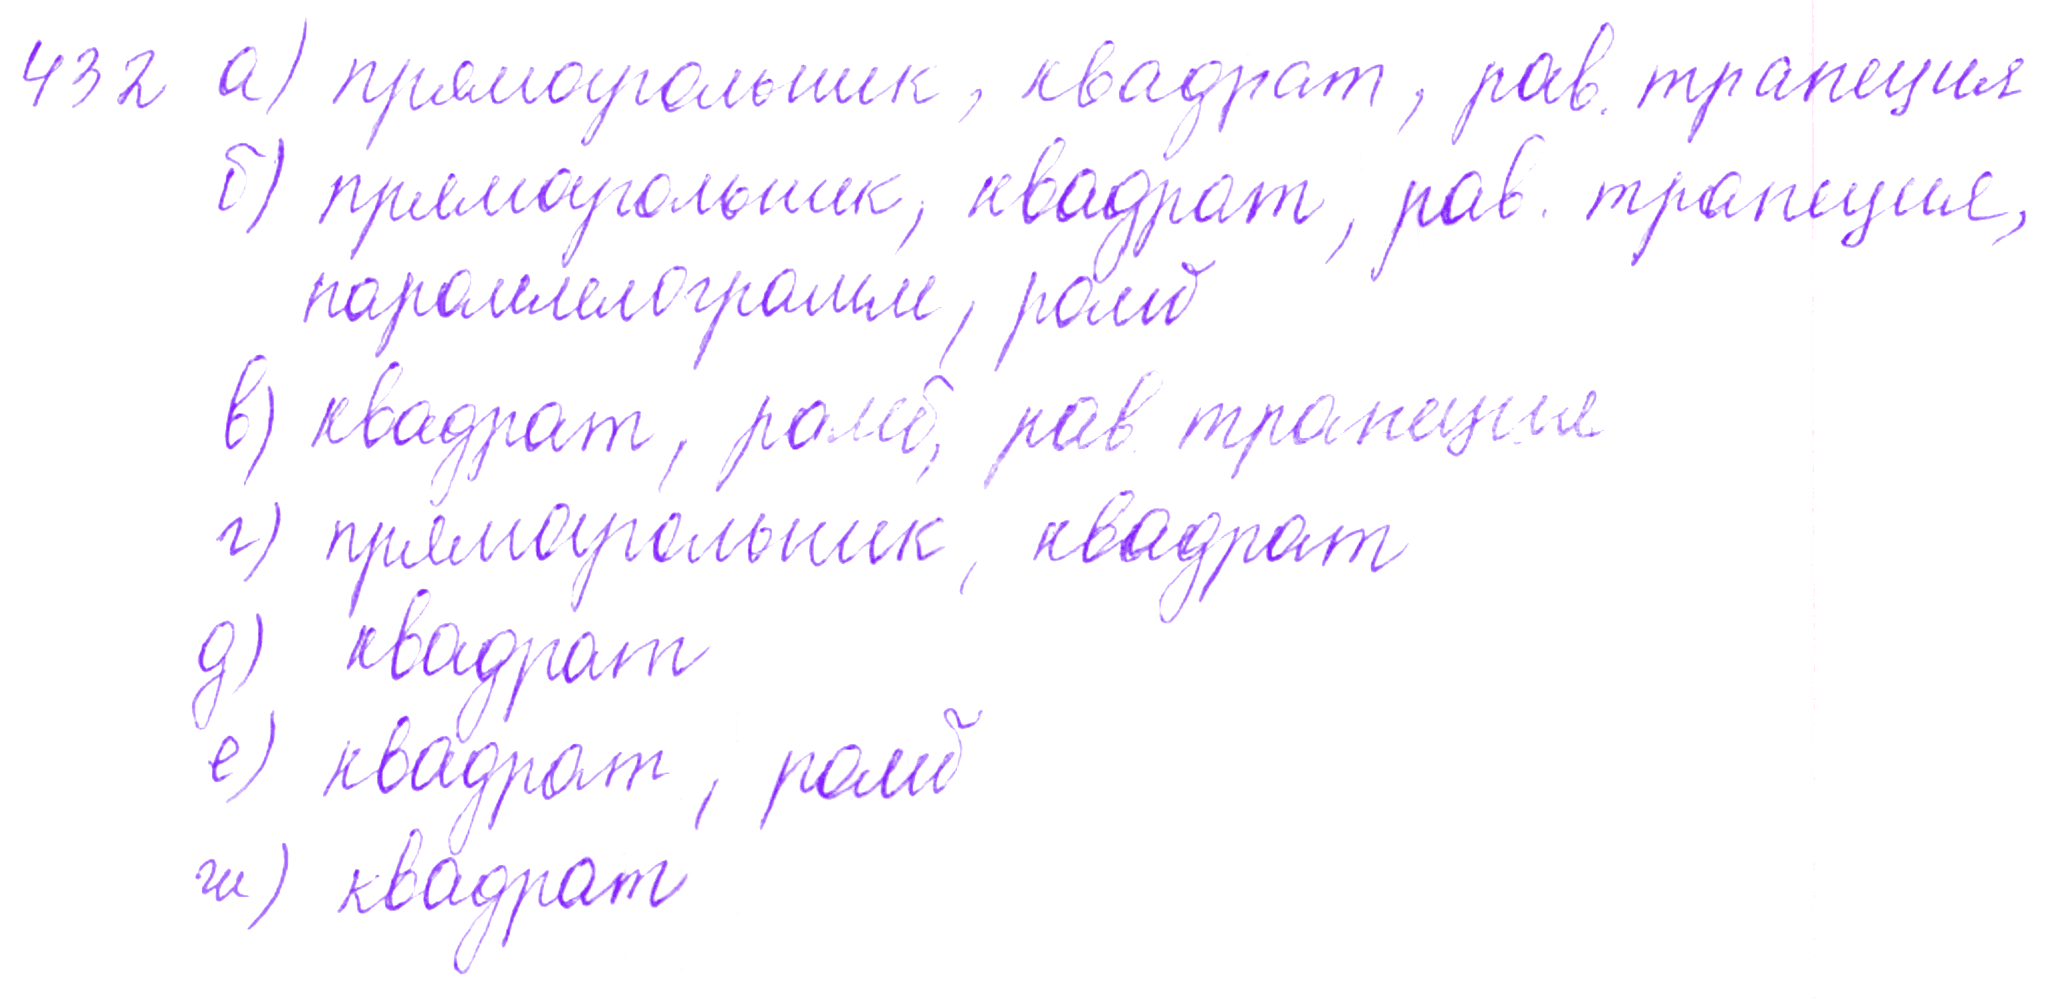 432 а) прямоугольник, квадрат, рав. трапеция
б) прямоугольник, квадрат, рав. трапеция,
параллелограмм, ромб
в) квадрат, ромб, рав. трапеция
г) прямоугольник, квадрат
д) квадрат
е) квадрат, ромб
ж) квадрат